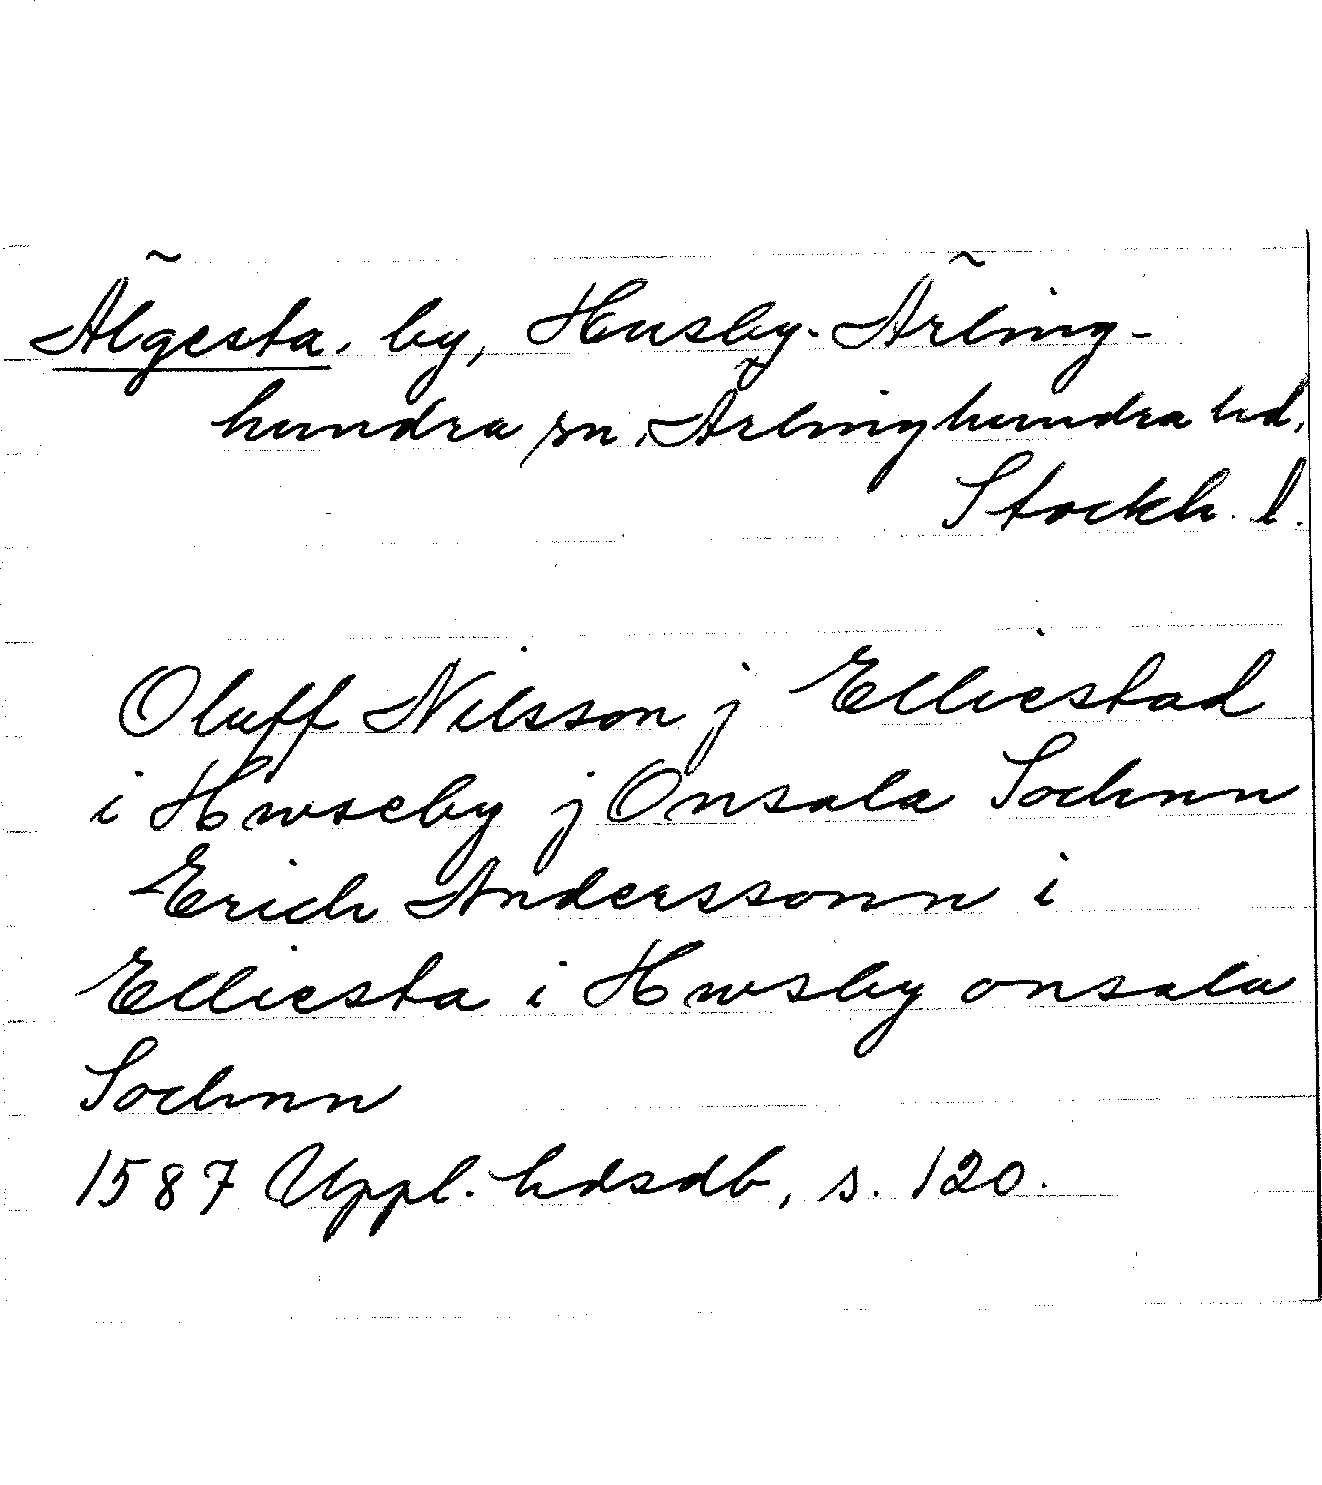 Älgesta, by, Husby-Ärling-
hundra sn, Ärlinghundra hd,
Stockh. l.
Oluff Nilsson j Elliestad
i Hwseby j Onsala Sochnn
Erich Anderssonn i
Elliesta i Hwsby onsala
Sochnn
1587 Uppl. hdsdb, s. 120.